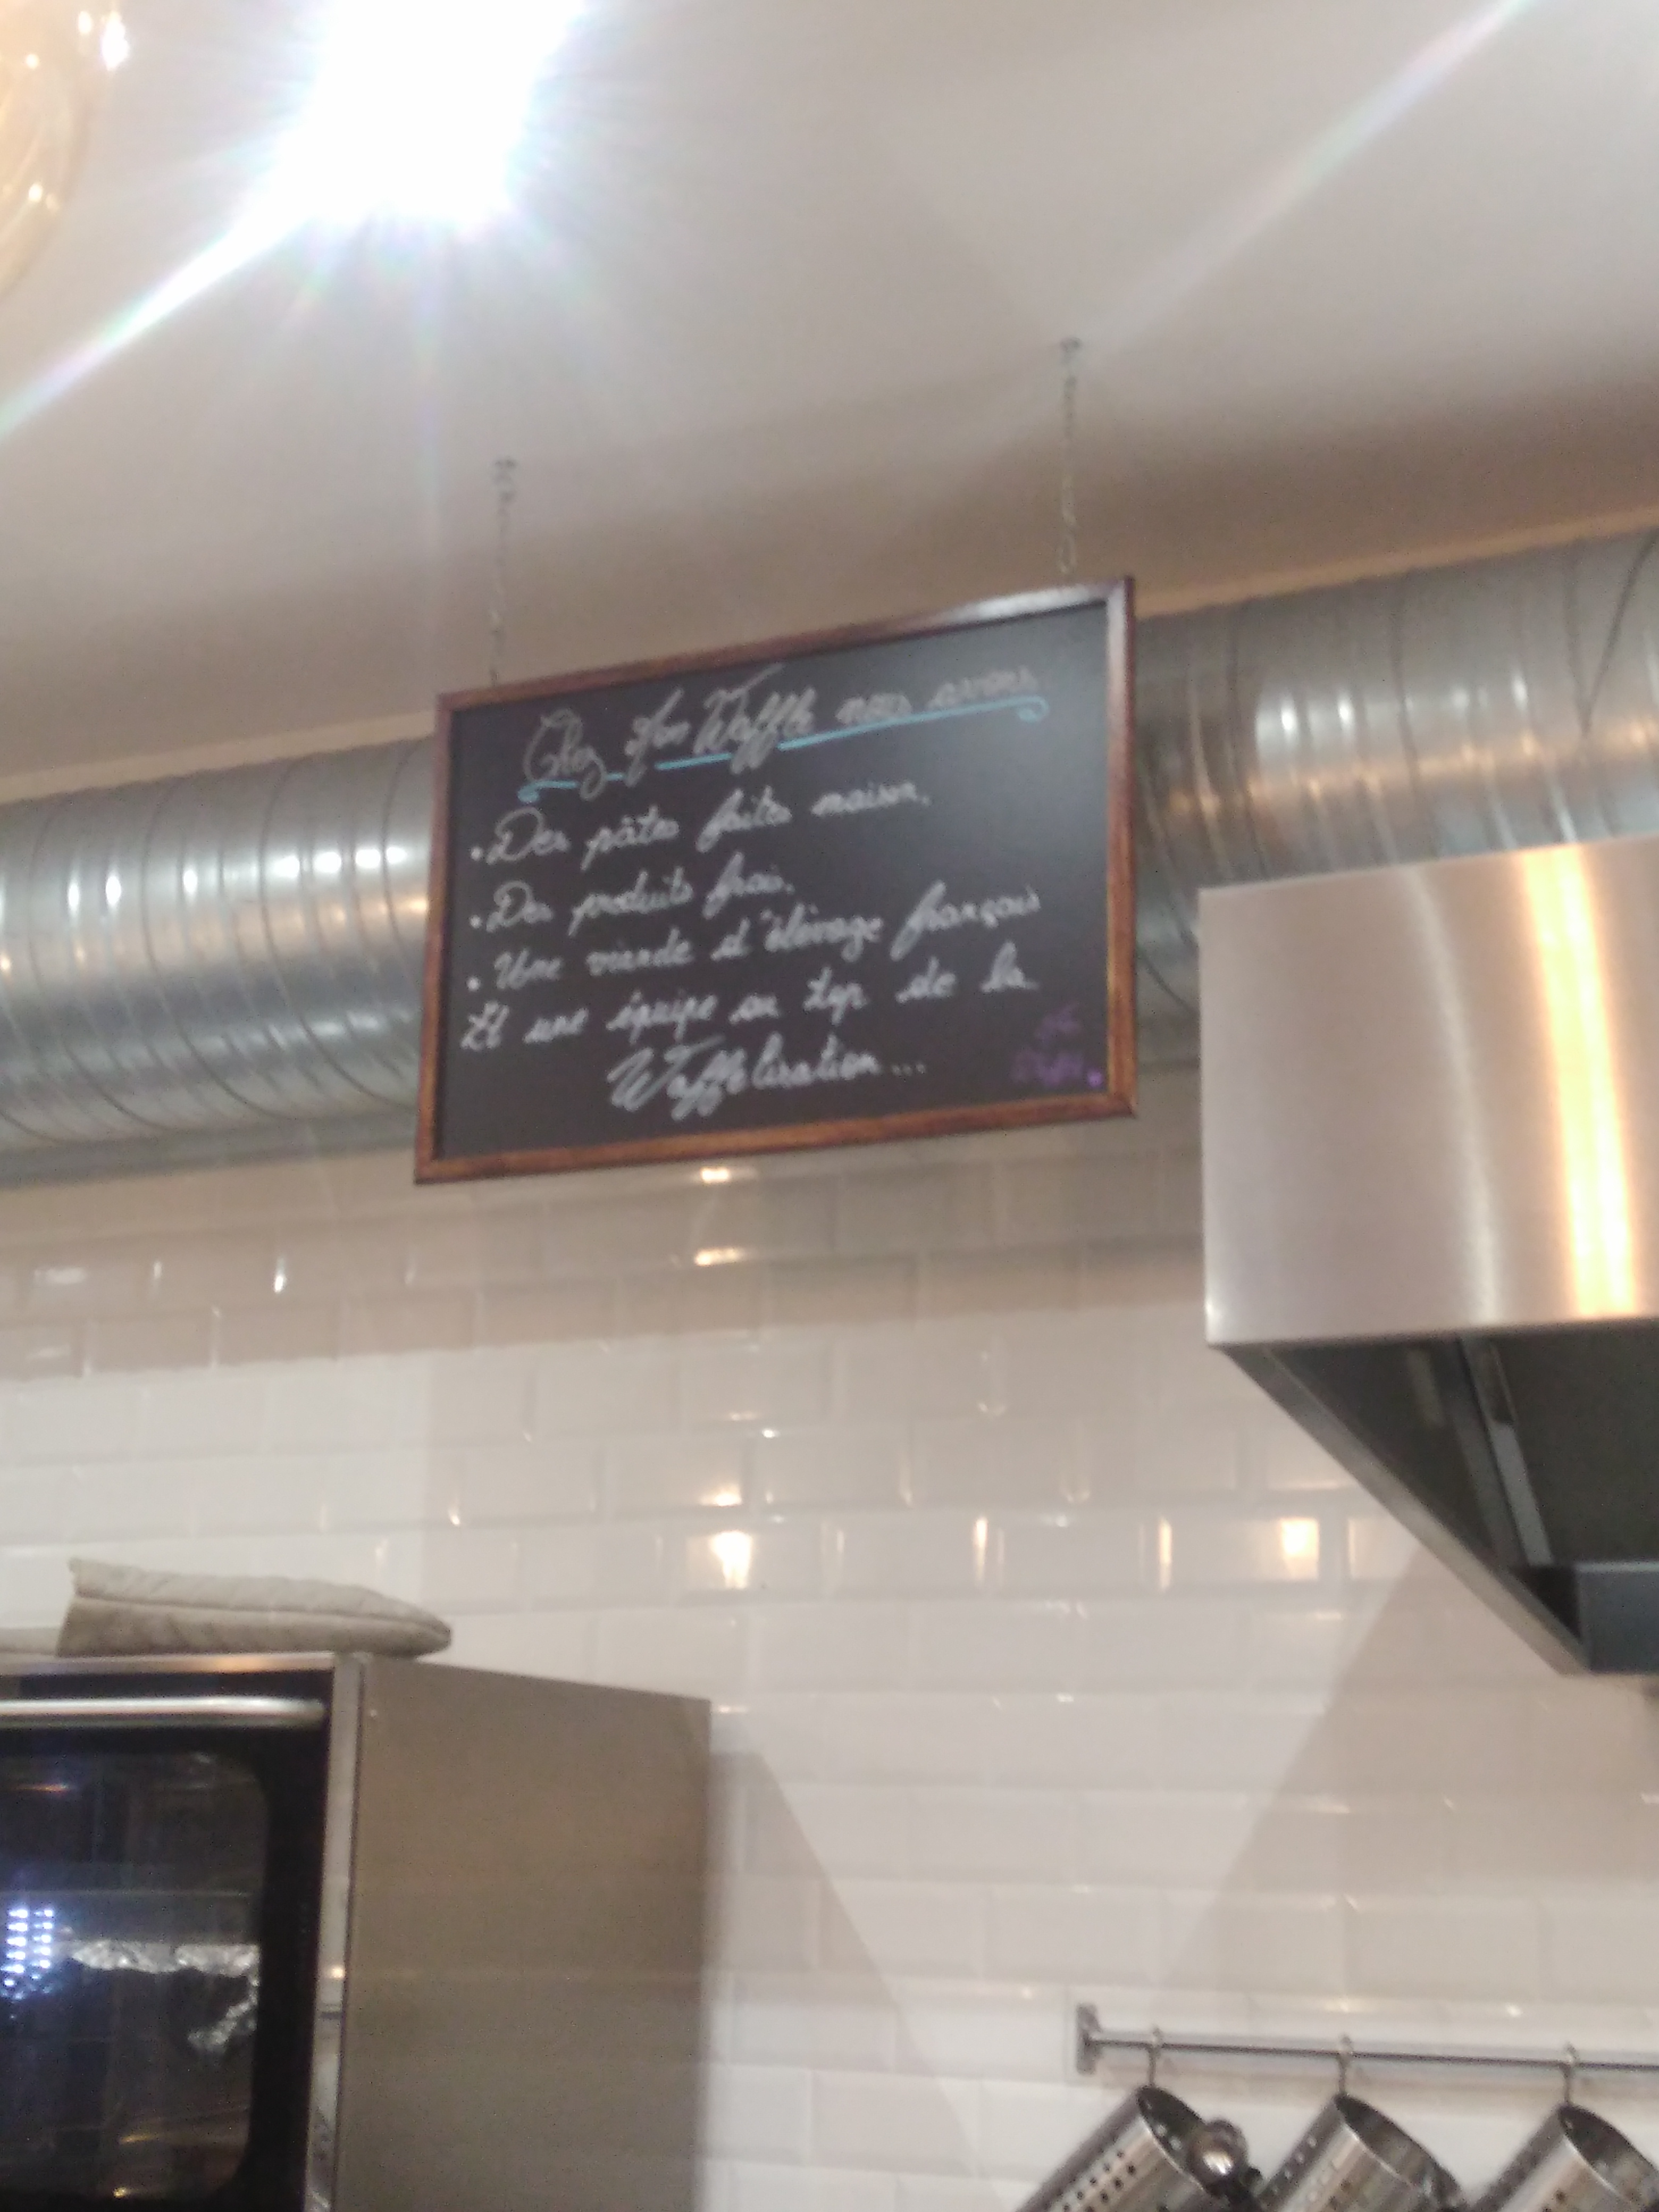 Chez Fun Waffle nous avons
• Des pâtes faites maison.
• Des produits frais.
• Une viande d'élevage français
Et une équipe au top de la
Waffelisation...